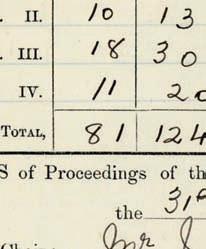 II. 10 13
. III. 18 30
IV. 11 20
TOTAL, 81 124
S of Proceedings of th
the 31st
Mr